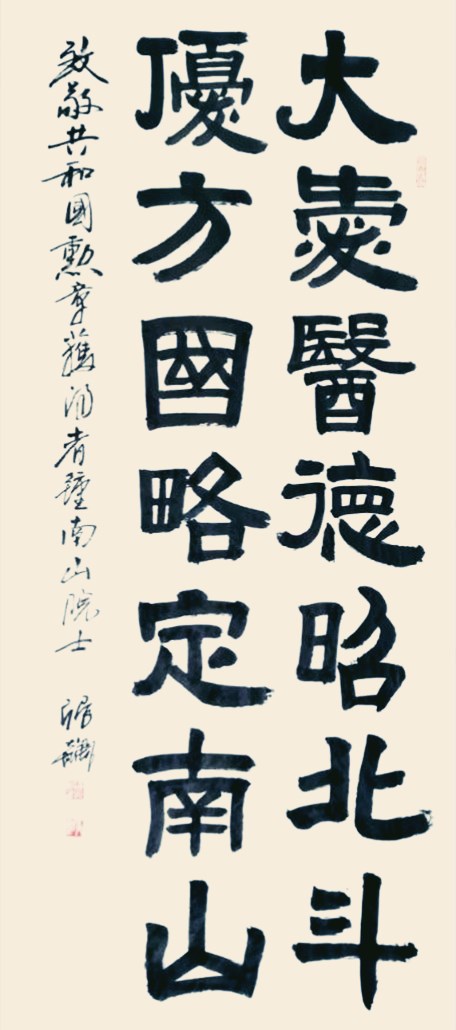 大愛醫德昭北斗
優方國略定南山
致敬共和國勲章獲得者鍾南山院士